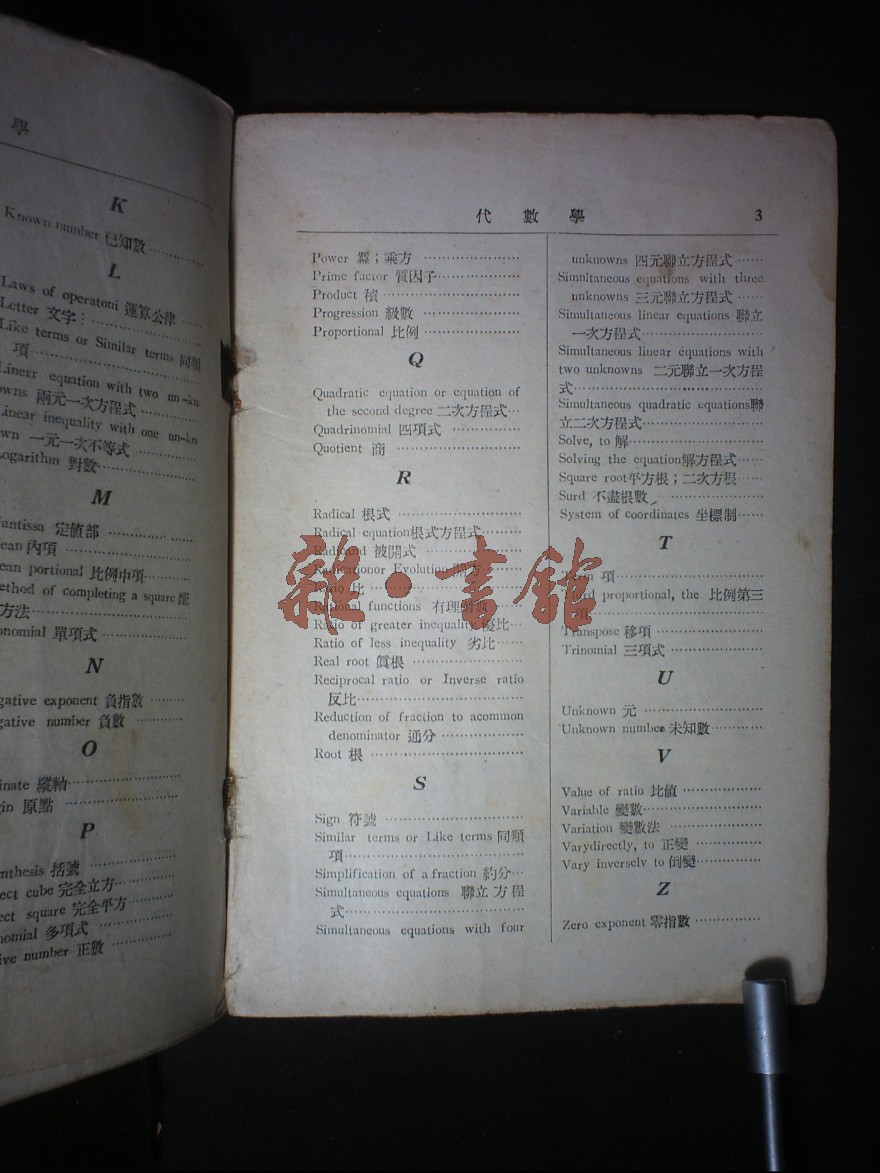 學
K
Known number 已知數
L
Laws of operatoni 運算公律
Letter 文字
Like terms or Similar terms 同類
項
Linerr equation with two un-kn
owns 兩元一次方程式
Linear inequality with one un-kn
own 一元一次不等式
Logarithm 對數
M
antissa 定值部
ean 內項
ean portional 比例中項
ethod of completing a square 配
方法
onomial 單項式
N
gative exponent 負指數
gative number 負數
O
inate 縱軸
gin 原點
P
nthesis 括號
ect cube 完全立方
ect square 完全平方
nomial 多項式
ive number 正數
代數學 3
Power 羃；乘方
Prime factor 質因子
Product 積
Progression 級數
Proportional 比例
Q
Quadratic equation or equation of
the second degree 二次方程式
Quadrinomial 四項式
Quotient 商
R
Radical 根式
Radical equation根式方程式
Radicand 被開式
Radicationor Evolution 開方
Ratio 比
Rational functions 有理
Ratio of greater inequality 優比
Ratio of less inequality 劣比
Real root 實根
Reciprocal ratio or Inverse ratio
反比
Reduction of fraction to acommon
denominator 通分
Root 根
S
Sign 符號
Similar terms or Like terms 同類
項
Simplification of a fraction 約分
Simultaneous equations 聯立方程
式
Simultaneous equations with four
unknowns 四元聯立方程式
Simultaneous equations with three
unknowns 三元聯立方程式
Simultaneous linear equations 聯立
一次方程式
Simultaneous linear equations with
two unknowns 二元聯立一次方程
式
Simultaneous quadratic equations聯
立二次方程式
Solve, to 解
Solving the equation解方程式
Square root平方根；二次方根
Surd 不盡根數
System of coordinates 坐標制
T
Term 項
Third proportional, the 比例第三
項
Transpose 移項
Trinomial 三項式
U
Unknown 元
Unknown number 未知數
V
Value of ratio 比值
Variable 變數
Variation 變數法
Varydirectly, to 正變
Vary inversely to 倒變
Z
Zero exponent 零指數
雜·書館